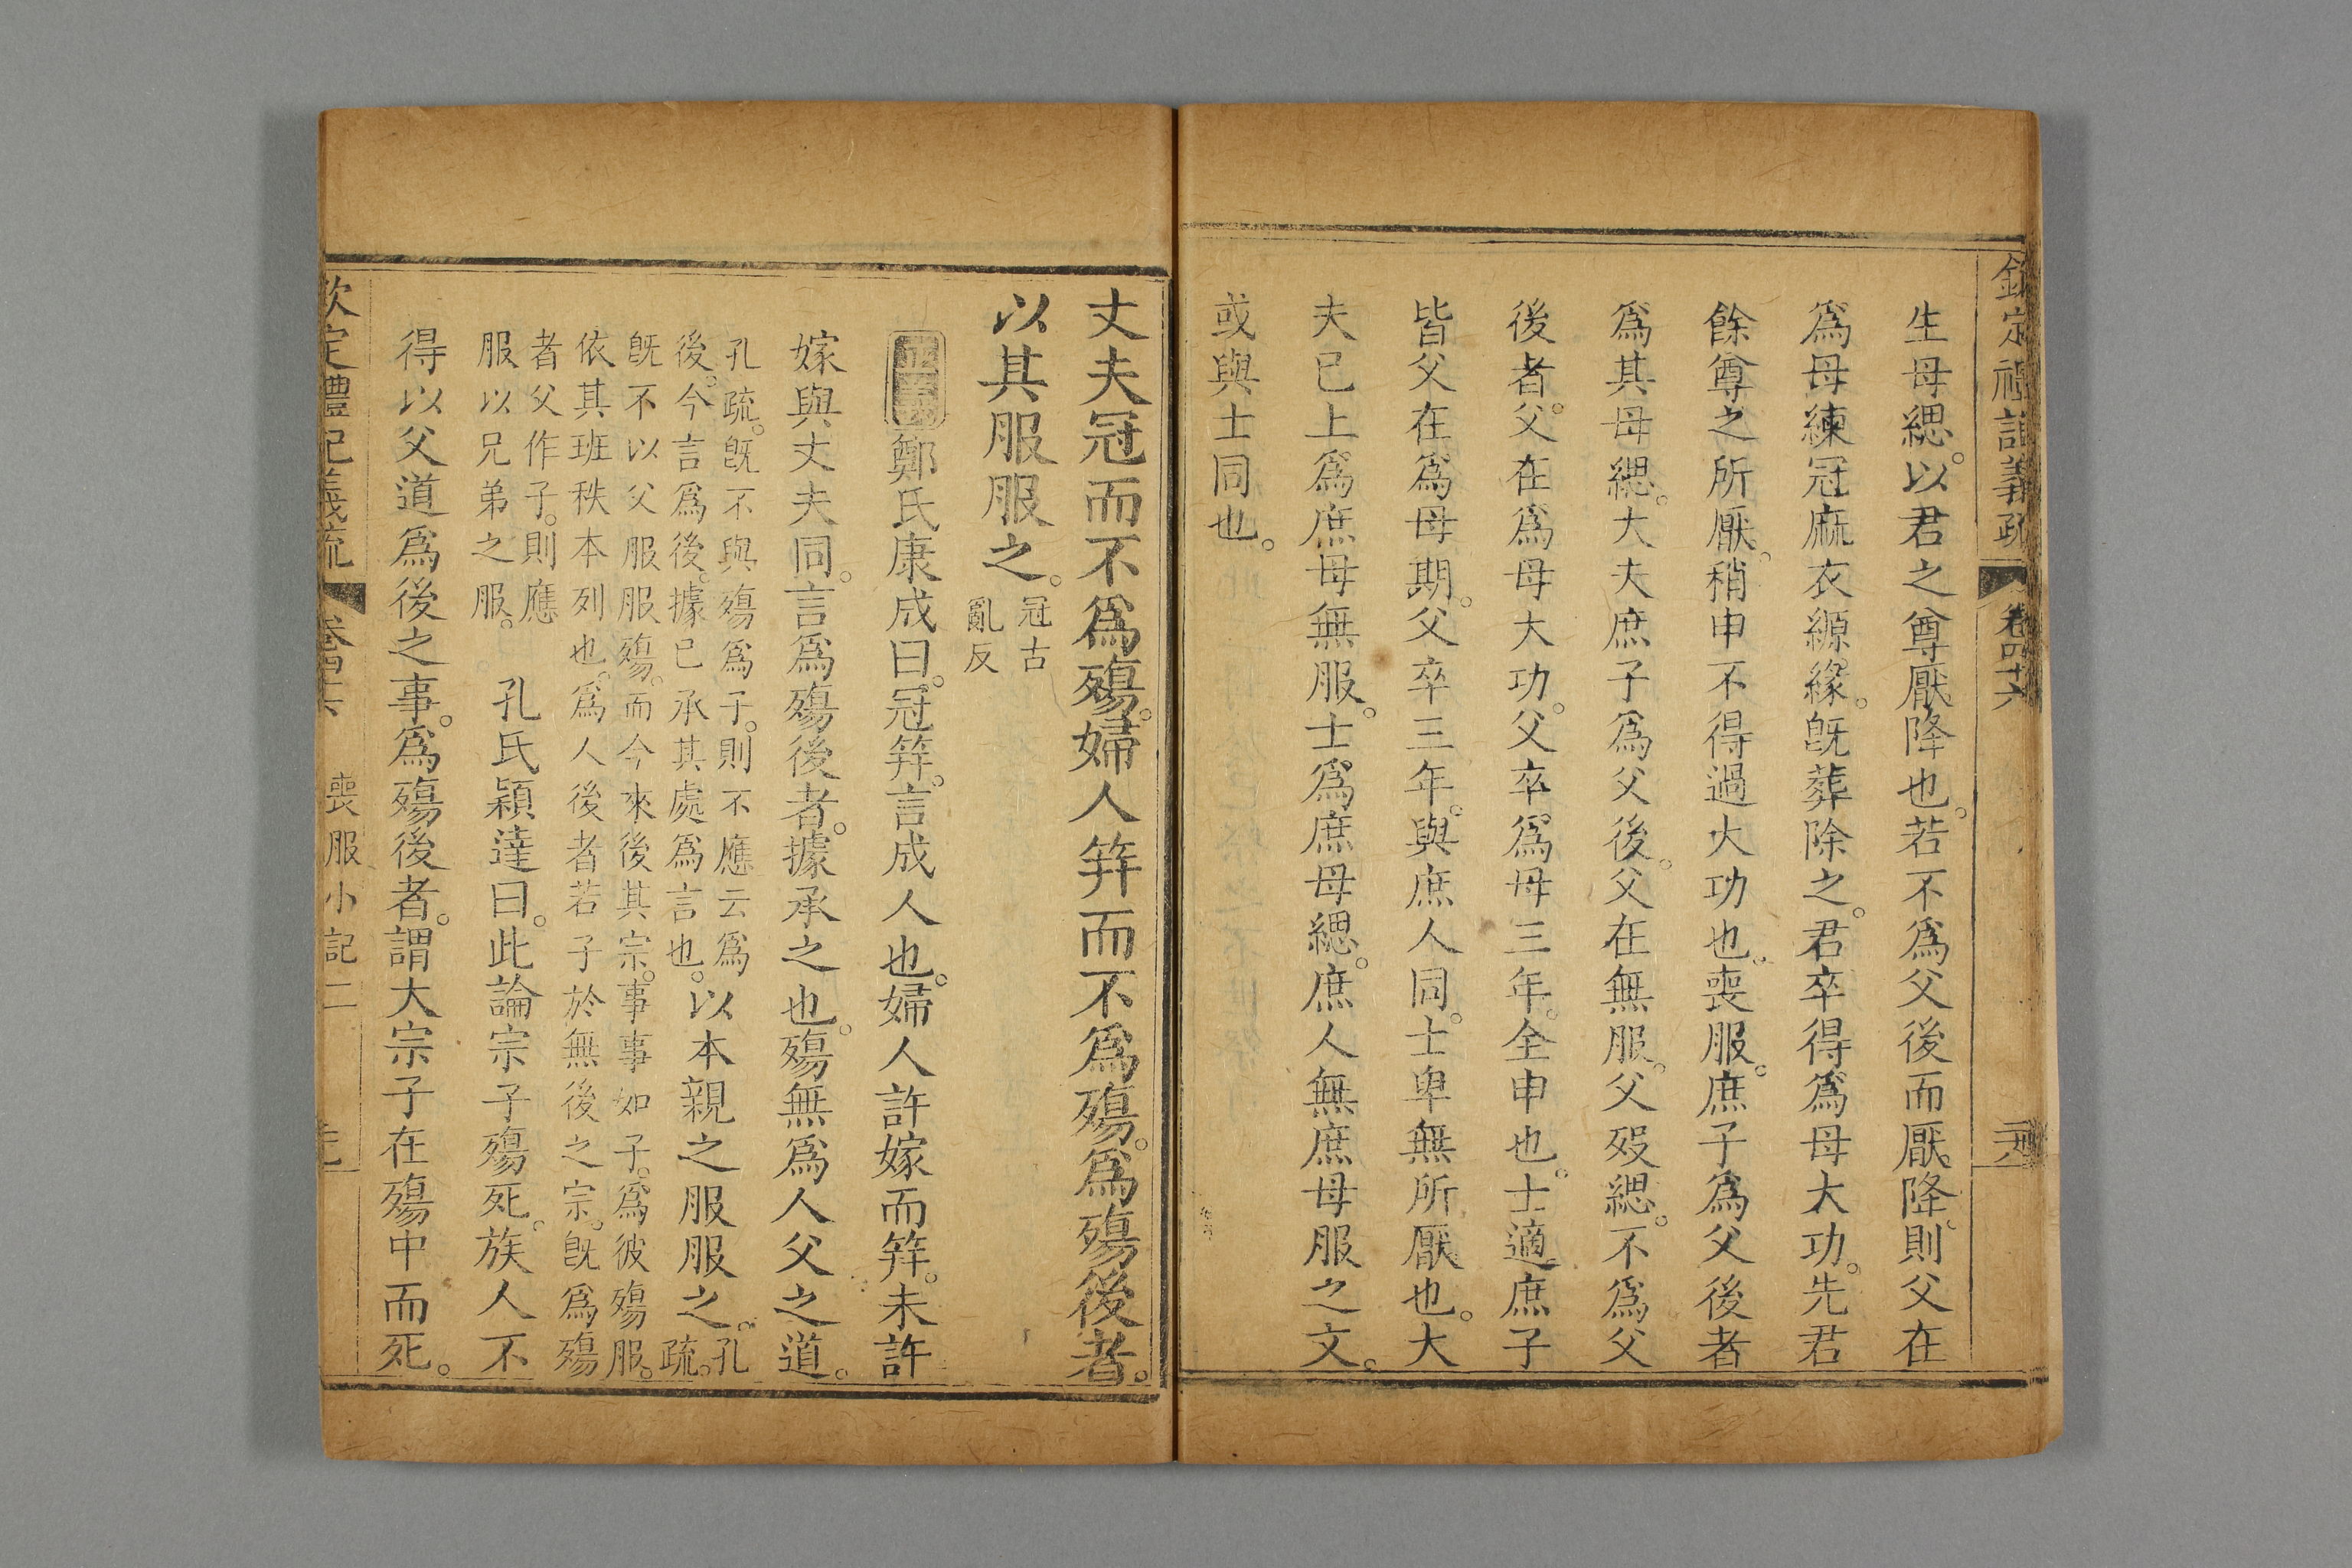 欽定禮記義疏 卷四十六
生母緦。以君之尊厭降也。若不爲父後而厭降。則父在
爲母練冠麻衣縓緣。旣葬除之。君卒得爲母大功。先君
餘尊之所厭。稍申不得過大功也。喪服。庶子爲父後者
爲其母緦。大夫庶子爲父後。父在無服。父歿緦。不爲父
後者。父在爲母大功。父卒爲母三年。全申也。士適庶子
皆父在爲母期。父卒三年。與庶人同。士卑無所厭也。大
夫已上爲庶母無服。士爲庶母緦。庶人無庶母服之文。
或與士同也。
丈夫冠而不爲殤。婦人笄而不爲殤。爲殤後者。
以其服服之。冠古
亂反
正義鄭氏康成曰。冠笄。言成人也。婦人許嫁而笄。未許
嫁與丈夫同。言爲殤後者。據承之也。殤無爲人父之道。
孔疏。旣不與殤爲子。則不應云爲
後。今言爲後。據已承其處爲言也。以本親之服服之。孔
疏。
旣不以父服服殤。而今來後其宗。事事如子。爲彼殤服。
依其班秩本列也。爲人後者若子於無後之宗。旣爲殤
者父作子。則應
服以兄弟之服。
孔氏穎達曰。此論宗子殤死。族人不
得以父道爲後之事。爲殤後者。謂大宗子在殤中而死。
欽定禮記義疏 卷四十六 喪服小記二